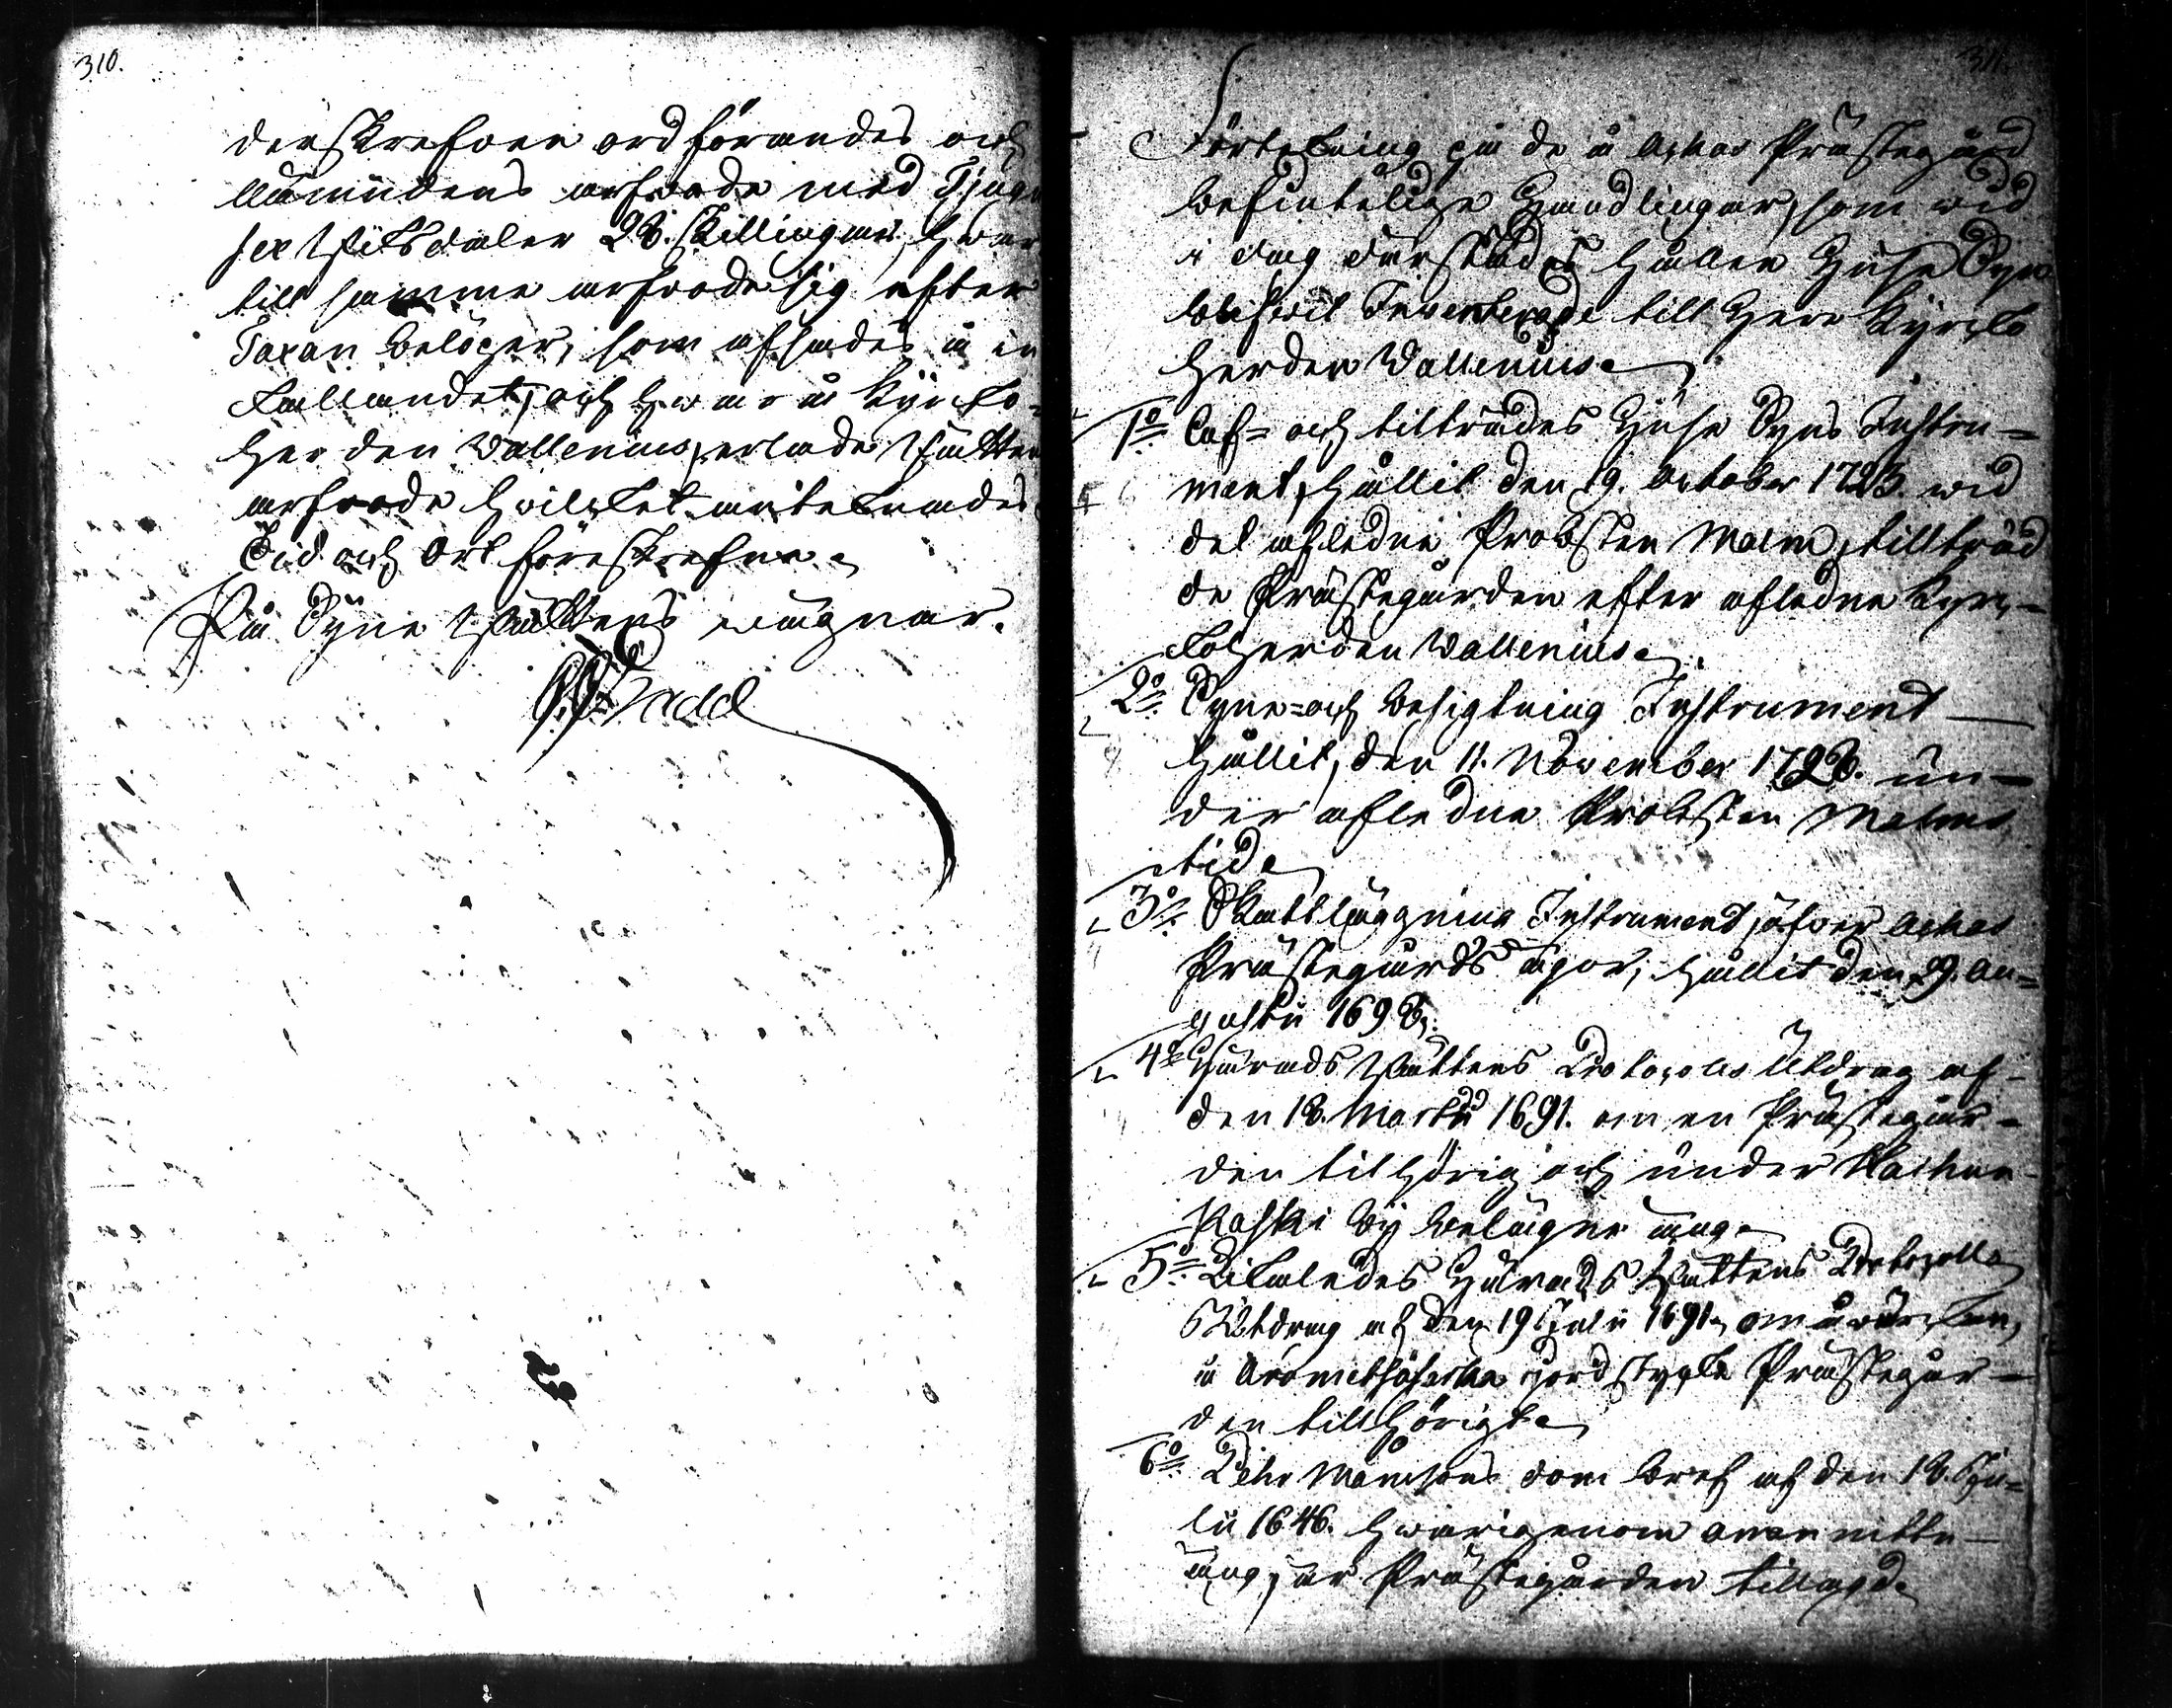 310.
derskrefvne ordförandes och
Nämndens arfvode med Tjugu
sex Riksdaler 28. skillingar, hwar
till samma arfvode sig efter
Taxan belöper, som afsades i in
kallandet, och hwar å Kyrcko-
herden Wallenius, erlade Rättens
arfvode hwilcket antecknades
Tid och Ort föreskrefne.
På Syne Rättens wägnar.
Gadd
311.
Förtekning på de å Achas Prästegård
befintelige Handlingar, som wid
i dag därstädes hållen Huse Syn
blifwit Inventerade till Herr Kyrcko
herden Wallenius.
1o Af- och tillträdes Huse Syns Instru-
ment, hållit den 19. October 1723. wid
det afledne Probsten Malm, tillträd
de Prästegården efter afledne Kyrc-
koherden Wallenius.
2o Syne- och besigtning Instrument
hållit, den 11. November 1728. un-
der afledne Probsten Malms
tid.
3o Skattläggning Instrument, öfver Achas
Prästegårds ägor, hållit den 29. Au-
gusti 1698.
4o Härads Rättens Protocolls Utdrag af
den 18. Martii 1691. om en Prästegår-
den tillhörig och under
Koski by belägne äng.
5o Likaledes Härads Rättens Protocolls
Utdrag af den 19 Julii 1691. om åwärckan,
å jordstycke Prästegår-
den tillhörigt.
6o Pehr Månsons dom bref af den 18. Ju-
lii 1646. hwarigenom
äng, är Prästegården tillagd.